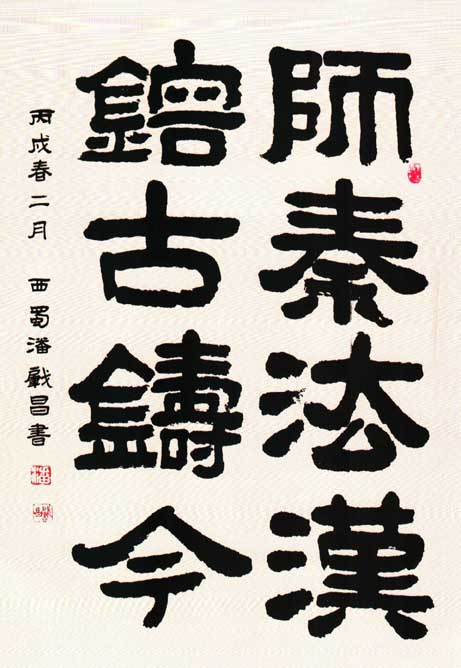 師秦法漢
鎔古鑄今
丙戌春二月 西蜀潘昌書